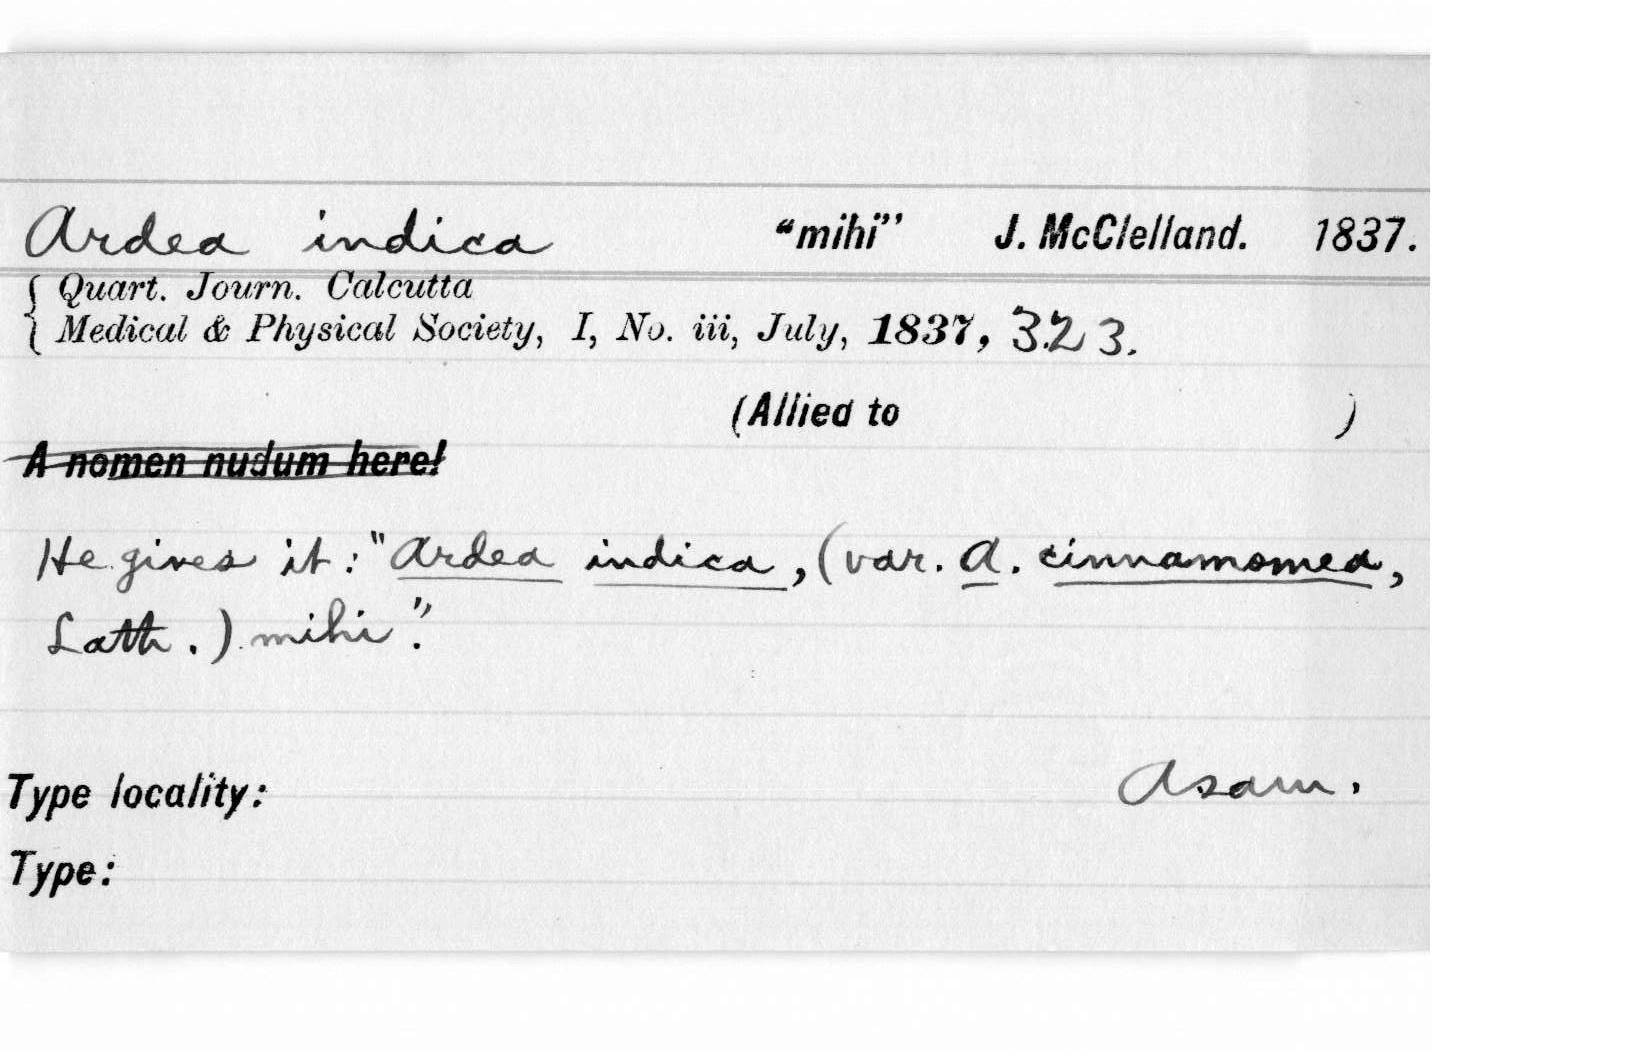 Ardea indica "mihi" J. McClelland. 1837.
Quart. Journ. Calcutta
Medical & Physical Society, I, No. iii, July, 1837, 323.
(Allied to )
A nomen nudum here!
He gives it: "Ardea indica, (var. A. cinnamomea,
Lath.) mihi".
Type locality: Asam.
Type: